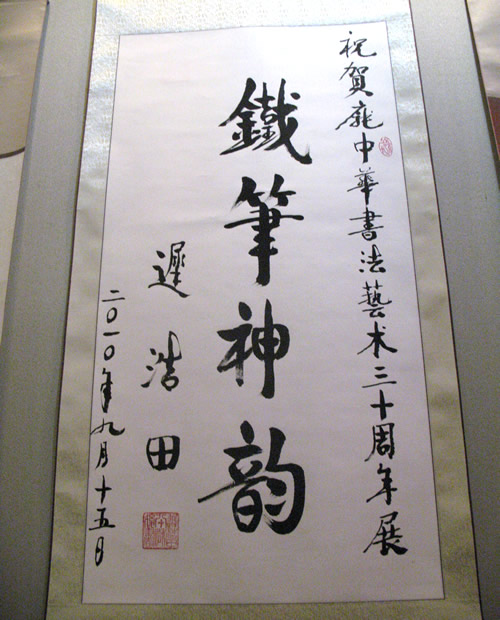 祝賀龐中華書法藝术三十周年展
鐵筆神韵
遲浩田
二〇一〇年九月十五日